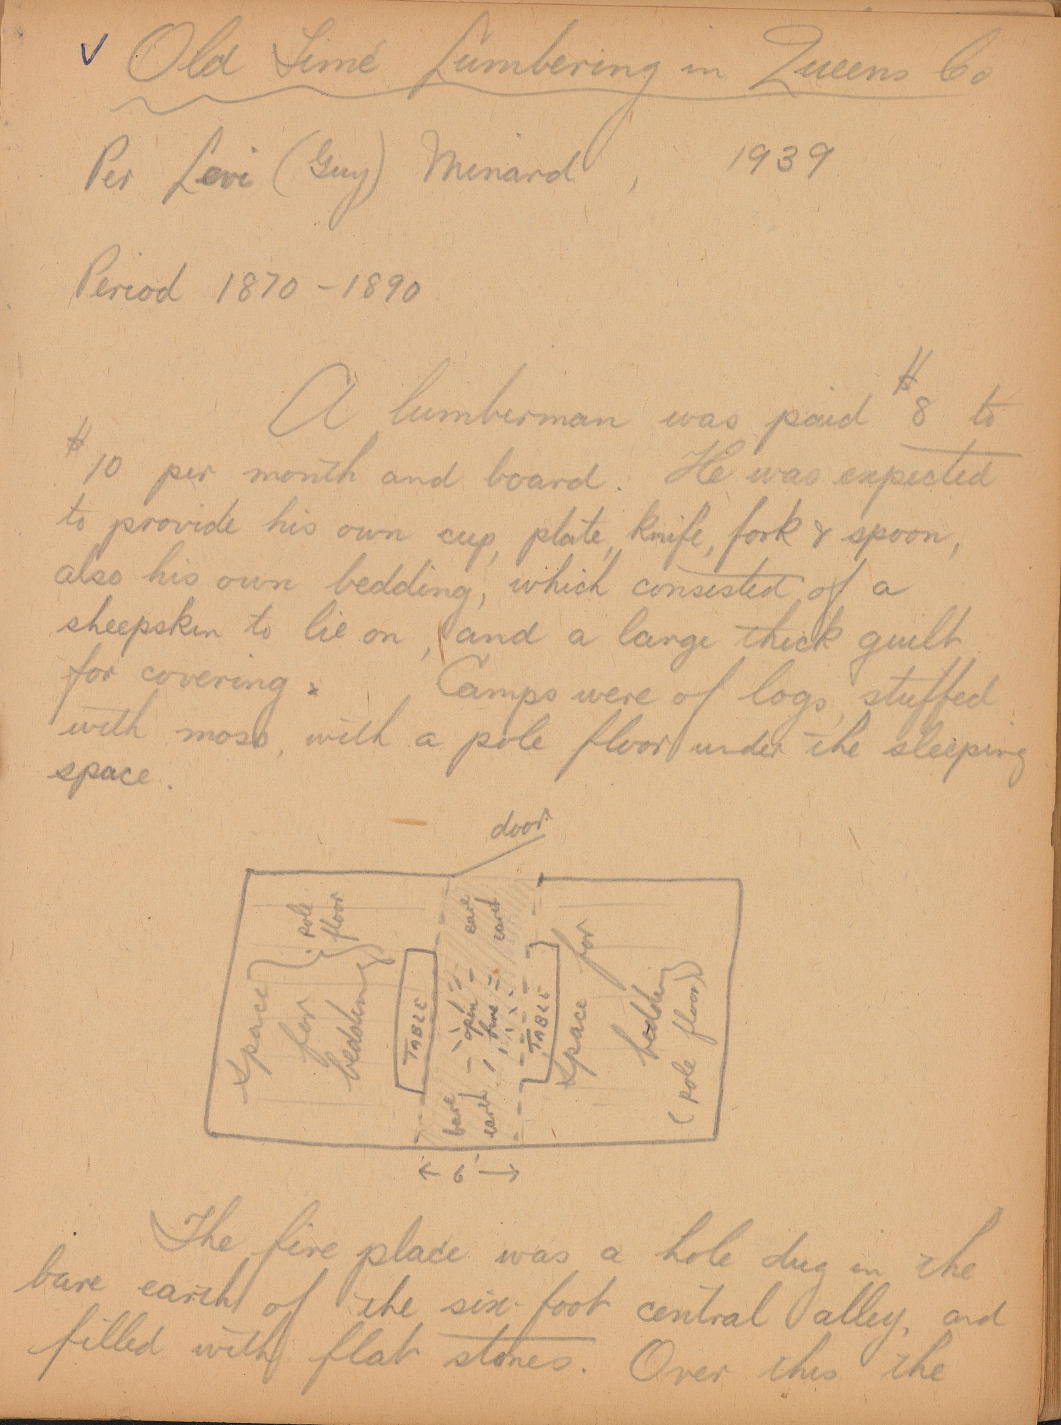 ✓ Old Time Lumbering in Queens Co
Per Levi (Guy) Minard, 1939
Period 1870-1890
A lumberman was paid $8 to
$10 per month and board. He was expected
to provide his own cup, plate, knife, fork & spoon,
also his own bedding, which consisted of a
sheepskin to lie on, and a large thick quilt
for covering. Camps were of logs, stuffed
with moss, with a pole floor under the sleeping
space.
door
pole
floor
space
for
bedding
TABLE
bare
earth
open
fire
bare
earth
TABLE
space
for
bedding
(pole floor)
← 6' →
The fire place was a hole dug in the
bare earth of the six-foot central alley, and
filled with flat stones. Over this the